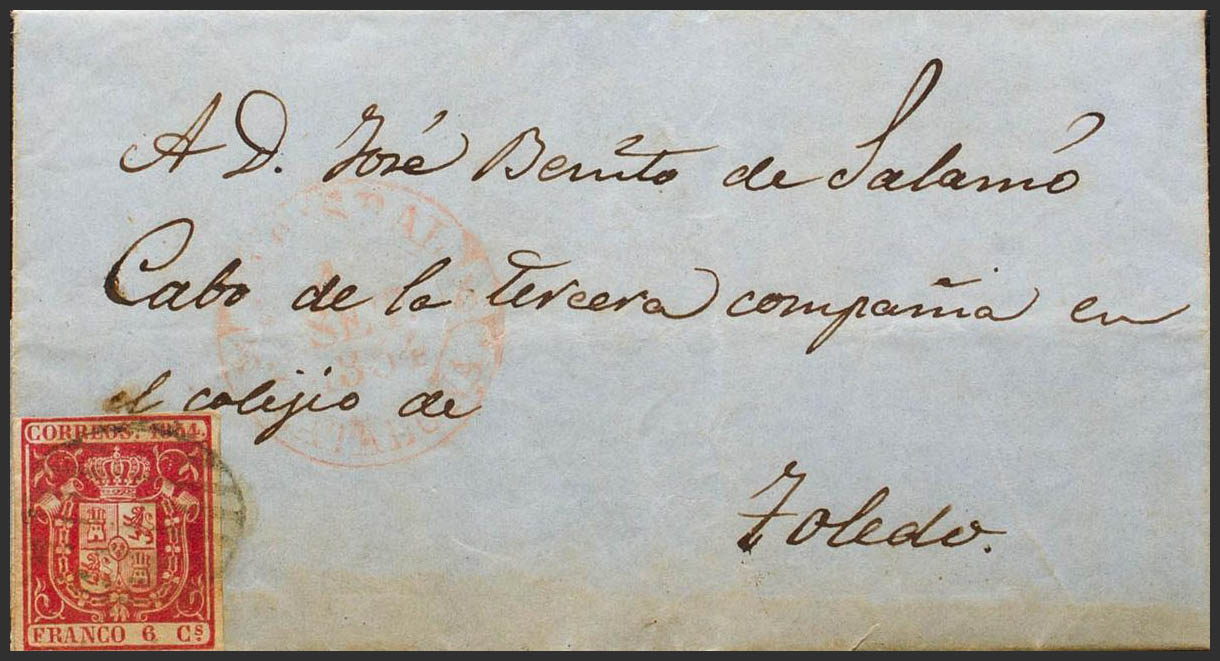 A D. José Benito de Salamó
Cabo de la tercera compañia en
el colijio de
Toledo.
SE
1854
CORREOS. 1854.
FRANCO 6 Cs.